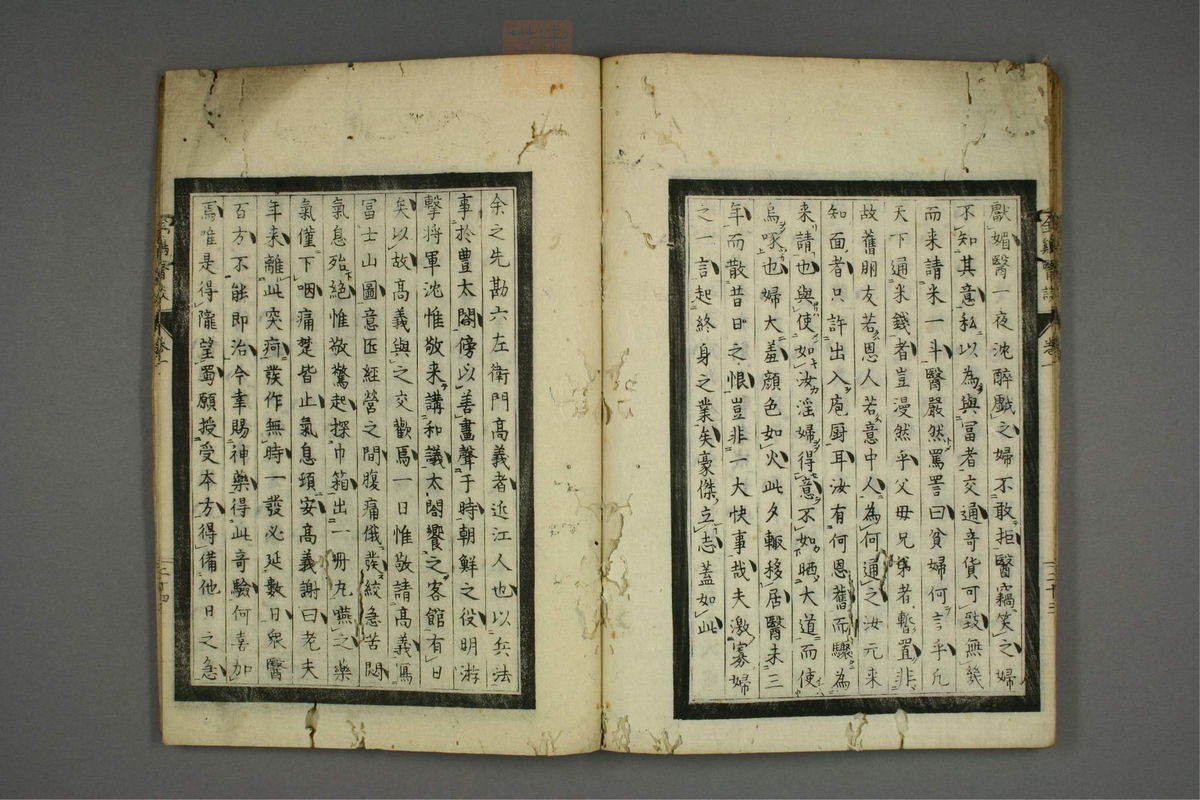 獻媚醫一夜沈醉戯之婦不敢拒醫竊笑之婦
不知其意私以為與冨者交通奇貨可致無幾
而来請米一斗醫嚴然罵詈曰貧婦何言乎凢
天下通米錢者豈漫然乎父毋兄弟者暫置非
故舊朋友若恩人若意中人為何通之汝元来
知面者只許出入庖厨耳汝有何恩舊而驟為
来請也與使如汝淫婦得意不如晒大道而使
烏啄也婦大羞顔色如火此夕輙移居醫未三
年而散昔日之恨豈非一大快事哉夫激寡婦
之一言起終身之業矣豪傑立志蓋如此
余之先勘六左衛門髙義者近江人也以兵法
事於豊太閤傍以善畫聲于時朝鮮之役明游
擊将軍沈惟敬来講和議太閤饗之客館有日
矣以故髙義與之交歡焉一日惟敬請髙義寫
冨士山圖意匠經營之間腹痛俄發絞急苦悶
氣息殆絕惟敬驚起探巾箱出一册丸嚥之藥
氣僅下咽痛楚皆止氣息頃安髙義謝曰老夫
年来離此突疴發作無時一發必延數日衆醫
百方不能即治今幸賜神藥得此奇驗何喜加
焉唯是得隴望蜀願授受本方得備他日之急
三十三
三十四